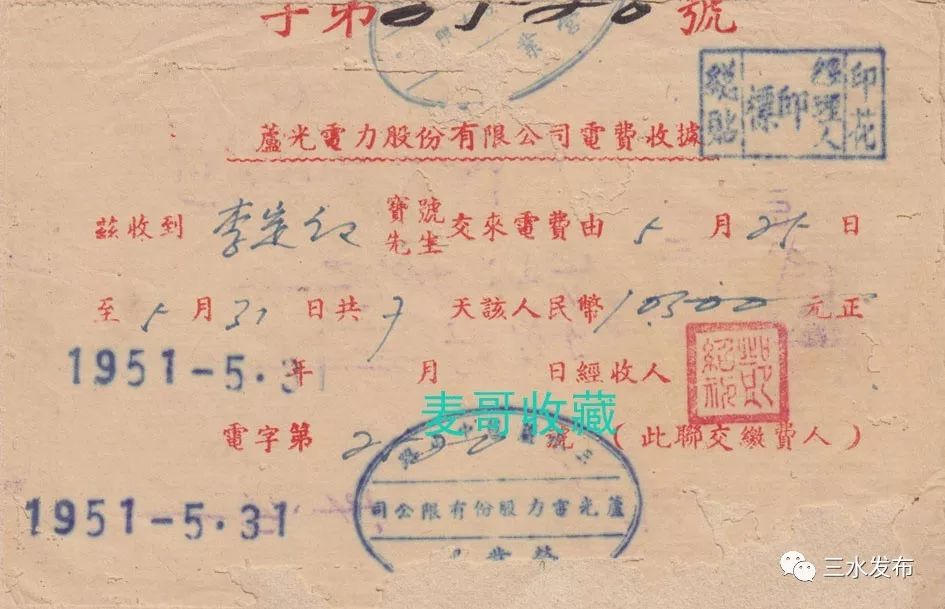 字第 號
印花
經理人
印
總貼
蘆光電力股份有限公司電費收據
茲收到 李 寶號先生交來電費由 5 月 25 日
至 5 月 31 日共 7 天該人民幣 10300 元正
1951-5.31
年 月 日經收人
麦哥收藏
電字第 號 (此聯交繳費人)
蘆光電力股份有限公司
營業
1951-5.31
三水发布